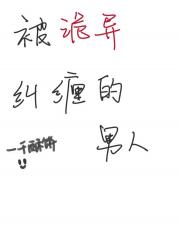 被诡异
纠缠的
男人
一千酥饼